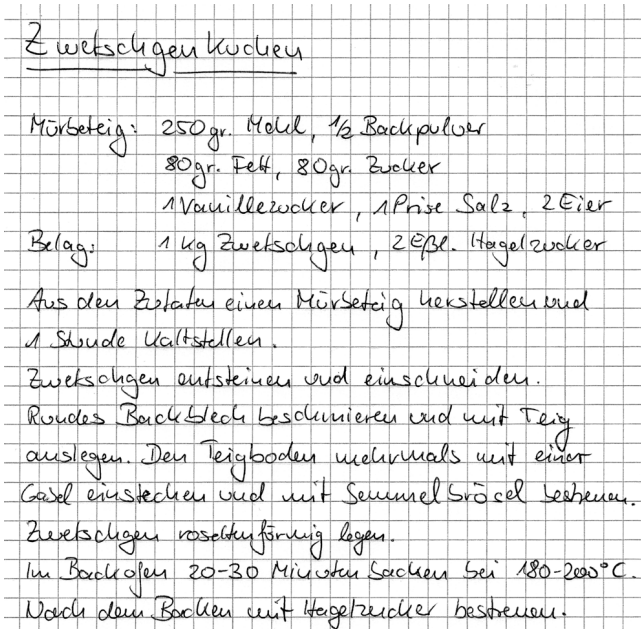 Zwetschgenkuchen
Mürbeteig: 250gr. Mehl, 1/2 Backpulver
80gr. Fett, 80gr. Zucker
1 Vanillezucker, 1 Prise Salz, 2 Eier
Belag: 1 kg Zwetschgen, 2 Eßl. Hagelzucker
Aus den Zutaten einen Mürbeteig herstellen und
1 Stunde kaltstellen.
Zwetschgen entsteinen und einschneiden.
Rundes Backblech beschmieren und mit Teig
auslegen. Den Teigboden mehrmals mit einer
Gabel einstechen und mit Semmelbrösel bestreuen.
Zwetschgen rosettenförmig legen.
Im Backofen 20-30 Minuten backen bei 180-200°C.
Nach dem Backen mit Hagelzucker bestreuen.